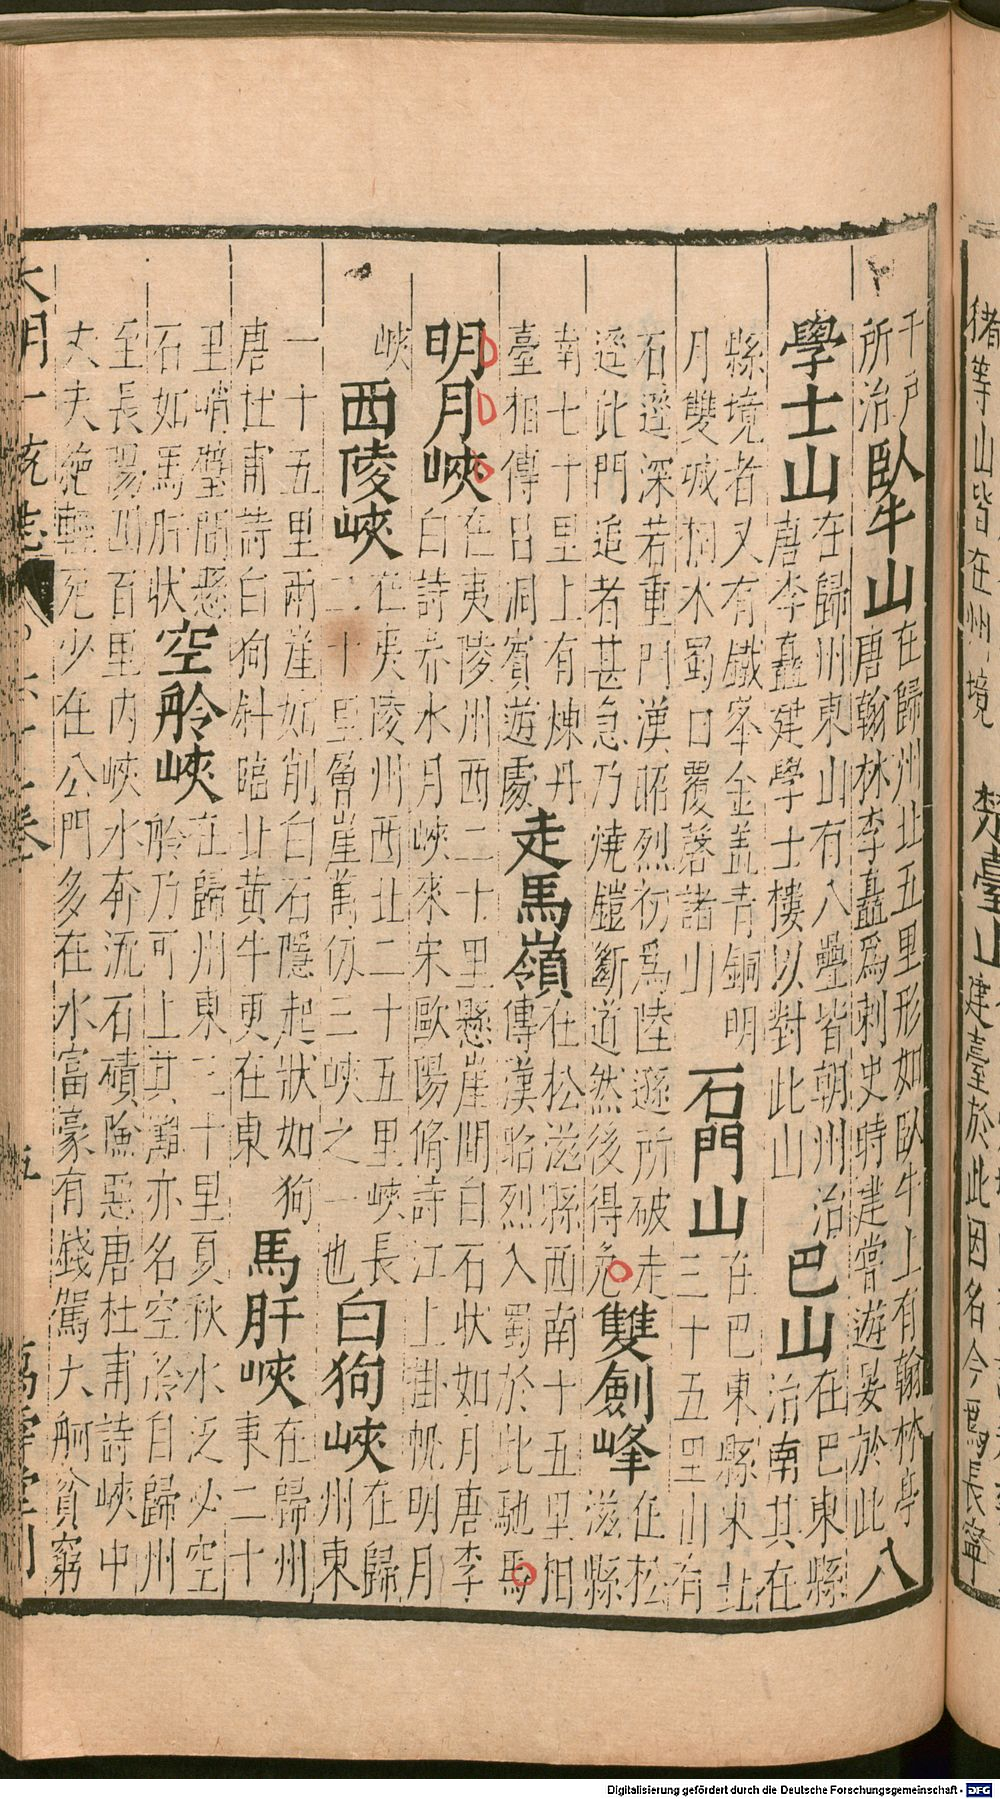 猪等山皆在州境 楚臺山 建臺於此因名今爲長寧
千戶所治 臥牛山 在歸州北五里形如臥牛上有翰林亭唐翰林李矗爲刺史時建嘗遊宴於此 八
學士山 在歸州東山有八疊皆朝州治唐李矗建學士樓以對此山 巴山 在巴東縣治南其在
縣境者又有鐵峯金盖青銅明月雙城桐木蜀口覆落諸山 石門山 在巴東縣東北三十五里山有
石逕深若重門漢昭烈初爲陸遜所破走逕此門追者甚急乃燒鎧斷道然後得免 雙劍峰 在松滋縣
南七十里上有煉丹臺相傳呂洞賓遊處 走馬嶺 在松滋縣西南十五里相傳漢昭烈入蜀於此馳馬
明月峽 在夷陵州西二十里懸崖間白石狀如月唐李白詩赤水月峽來宋歐陽脩詩江上掛帆明月
峽 西陵峽 在夷陵州西北二十五里峽長二十里層崖萬仞三峽之一也 白狗峽 在歸州東
一十五里兩崖如削白石隱起狀如狗唐杜甫詩白狗斜臨北黃牛更在東 馬肝峽 在歸州東二十
里峭壁間懸石如馬肝狀 空舲峽 在歸州東三十里夏秋水泛必空舲乃可上其灘亦名空舲自歸州
至長陽四百里內峽水奔流石磧險惡唐杜甫詩峽中丈夫絕輕死少在公門多在水富豪有錢駕大舸貧窮
大明一統志 卷 五 萬壽堂刊
Digitalisierung gefördert durch die Deutsche Forschungsgemeinschaft - DFG